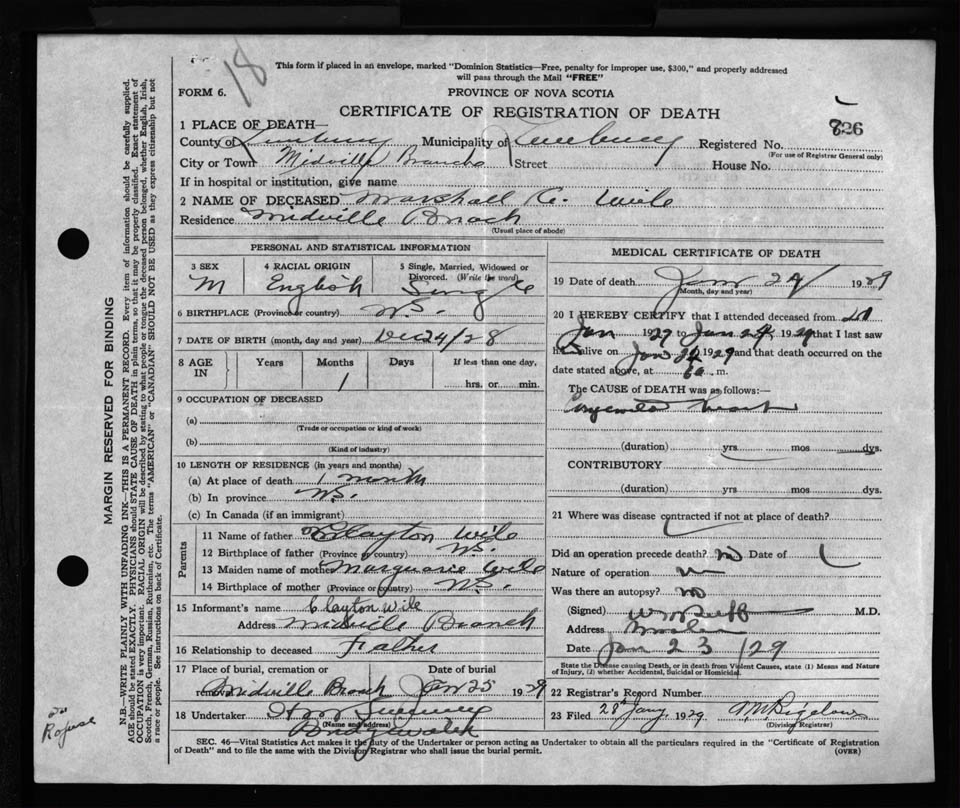 18
This form if placed in an envelope, marked "Dominion Statistics—Free, penalty for improper use, $300," and properly addressed
will pass through the Mail "FREE"
FORM 6.
PROVINCE OF NOVA SCOTIA
CERTIFICATE OF REGISTRATION OF DEATH
826
1 PLACE OF DEATH—
County of Lunenburg Municipality of Lunenburg Registered No.
(For use of Registrar General only)
City or Town Midville Branch Street House No.
If in hospital or institution, give name
2 NAME OF DECEASED Marshall Wile
Residence Midville Branch
(Usual place of abode)
PERSONAL AND STATISTICAL INFORMATION
3 SEX 4 RACIAL ORIGIN 5 Single, Married, Widowed or
Divorced. (Write the word)
M English Single
6 BIRTHPLACE (Province or country) N.S.
7 DATE OF BIRTH (month, day and year) Dec 24/28
8 AGE IN Years Months Days If less than one day,
1 hrs. or min.
9 OCCUPATION OF DECEASED
(a)
(Trade or occupation or kind of work)
(b)
(Kind of industry)
10 LENGTH OF RESIDENCE (in years and months)
(a) At place of death 1 month
(b) In province N.S.
(c) In Canada (if an immigrant)
Parents
11 Name of father Clayton Wile
12 Birthplace of father (Province or country) N.S.
13 Maiden name of mother Wile
14 Birthplace of mother (Province or country) N.S.
15 Informant's name Clayton Wile
Address Midville Branch
16 Relationship to deceased Father
17 Place of burial, cremation or Date of burial
removal Midville Branch Jan 25 1929
18 Undertaker
Bridgewater
(Name and address)
MEDICAL CERTIFICATE OF DEATH
19 Date of death Jan 24/ 1929
(Month, day and year)
20 I HEREBY CERTIFY that I attended deceased from
Jan to Jan 24, 1929 that I last saw
h alive on Jan 1929 and that death occurred on
date stated above, at m.
The CAUSE of DEATH was as follows:—
heart
(duration) yrs mos dys.
CONTRIBUTORY
(duration) yrs mos dys.
21 Where was disease contracted if not at place of death?
Did an operation precede death? no Date of
Nature of operation
Was there an autopsy? no
(Signed) M.D.
Address
Date Jan 23/29
State the Disease causing Death, or in death from Violent Causes, state (1) Means and Nature
of Injury, (2) whether Accidental, Suicidal or Homicidal.
22 Registrar's Record Number
23 Filed 28 Jany 1929 Bigelow
(Division Registrar)
SEC. 46—Vital Statistics Act makes it the duty of the Undertaker or person acting as Undertaker to obtain all the particulars required in the "Certificate of Registration
of Death" and to file the same with the Division Registrar who shall issue the burial permit.
(OVER)
MARGIN RESERVED FOR BINDING
N.B.—WRITE PLAINLY WITH UNFADING INK—THIS IS A PERMANENT RECORD. Every item of information should be carefully supplied.
AGE should be stated EXACTLY. PHYSICIANS should STATE CAUSE OF DEATH in plain terms, so that it may be properly classified. Exact statement of
OCCUPATION is very important. RACIAL ORIGIN will be described by stating to what people or tongue the deceased person belonged, whether English, Irish,
Scotch, French, German, Russian, Ruthenian, etc. The terms "AMERICAN" or "CANADIAN" SHOULD NOT BE USED as they express citizenship but not
a race or people. See instructions on back of Certificate.